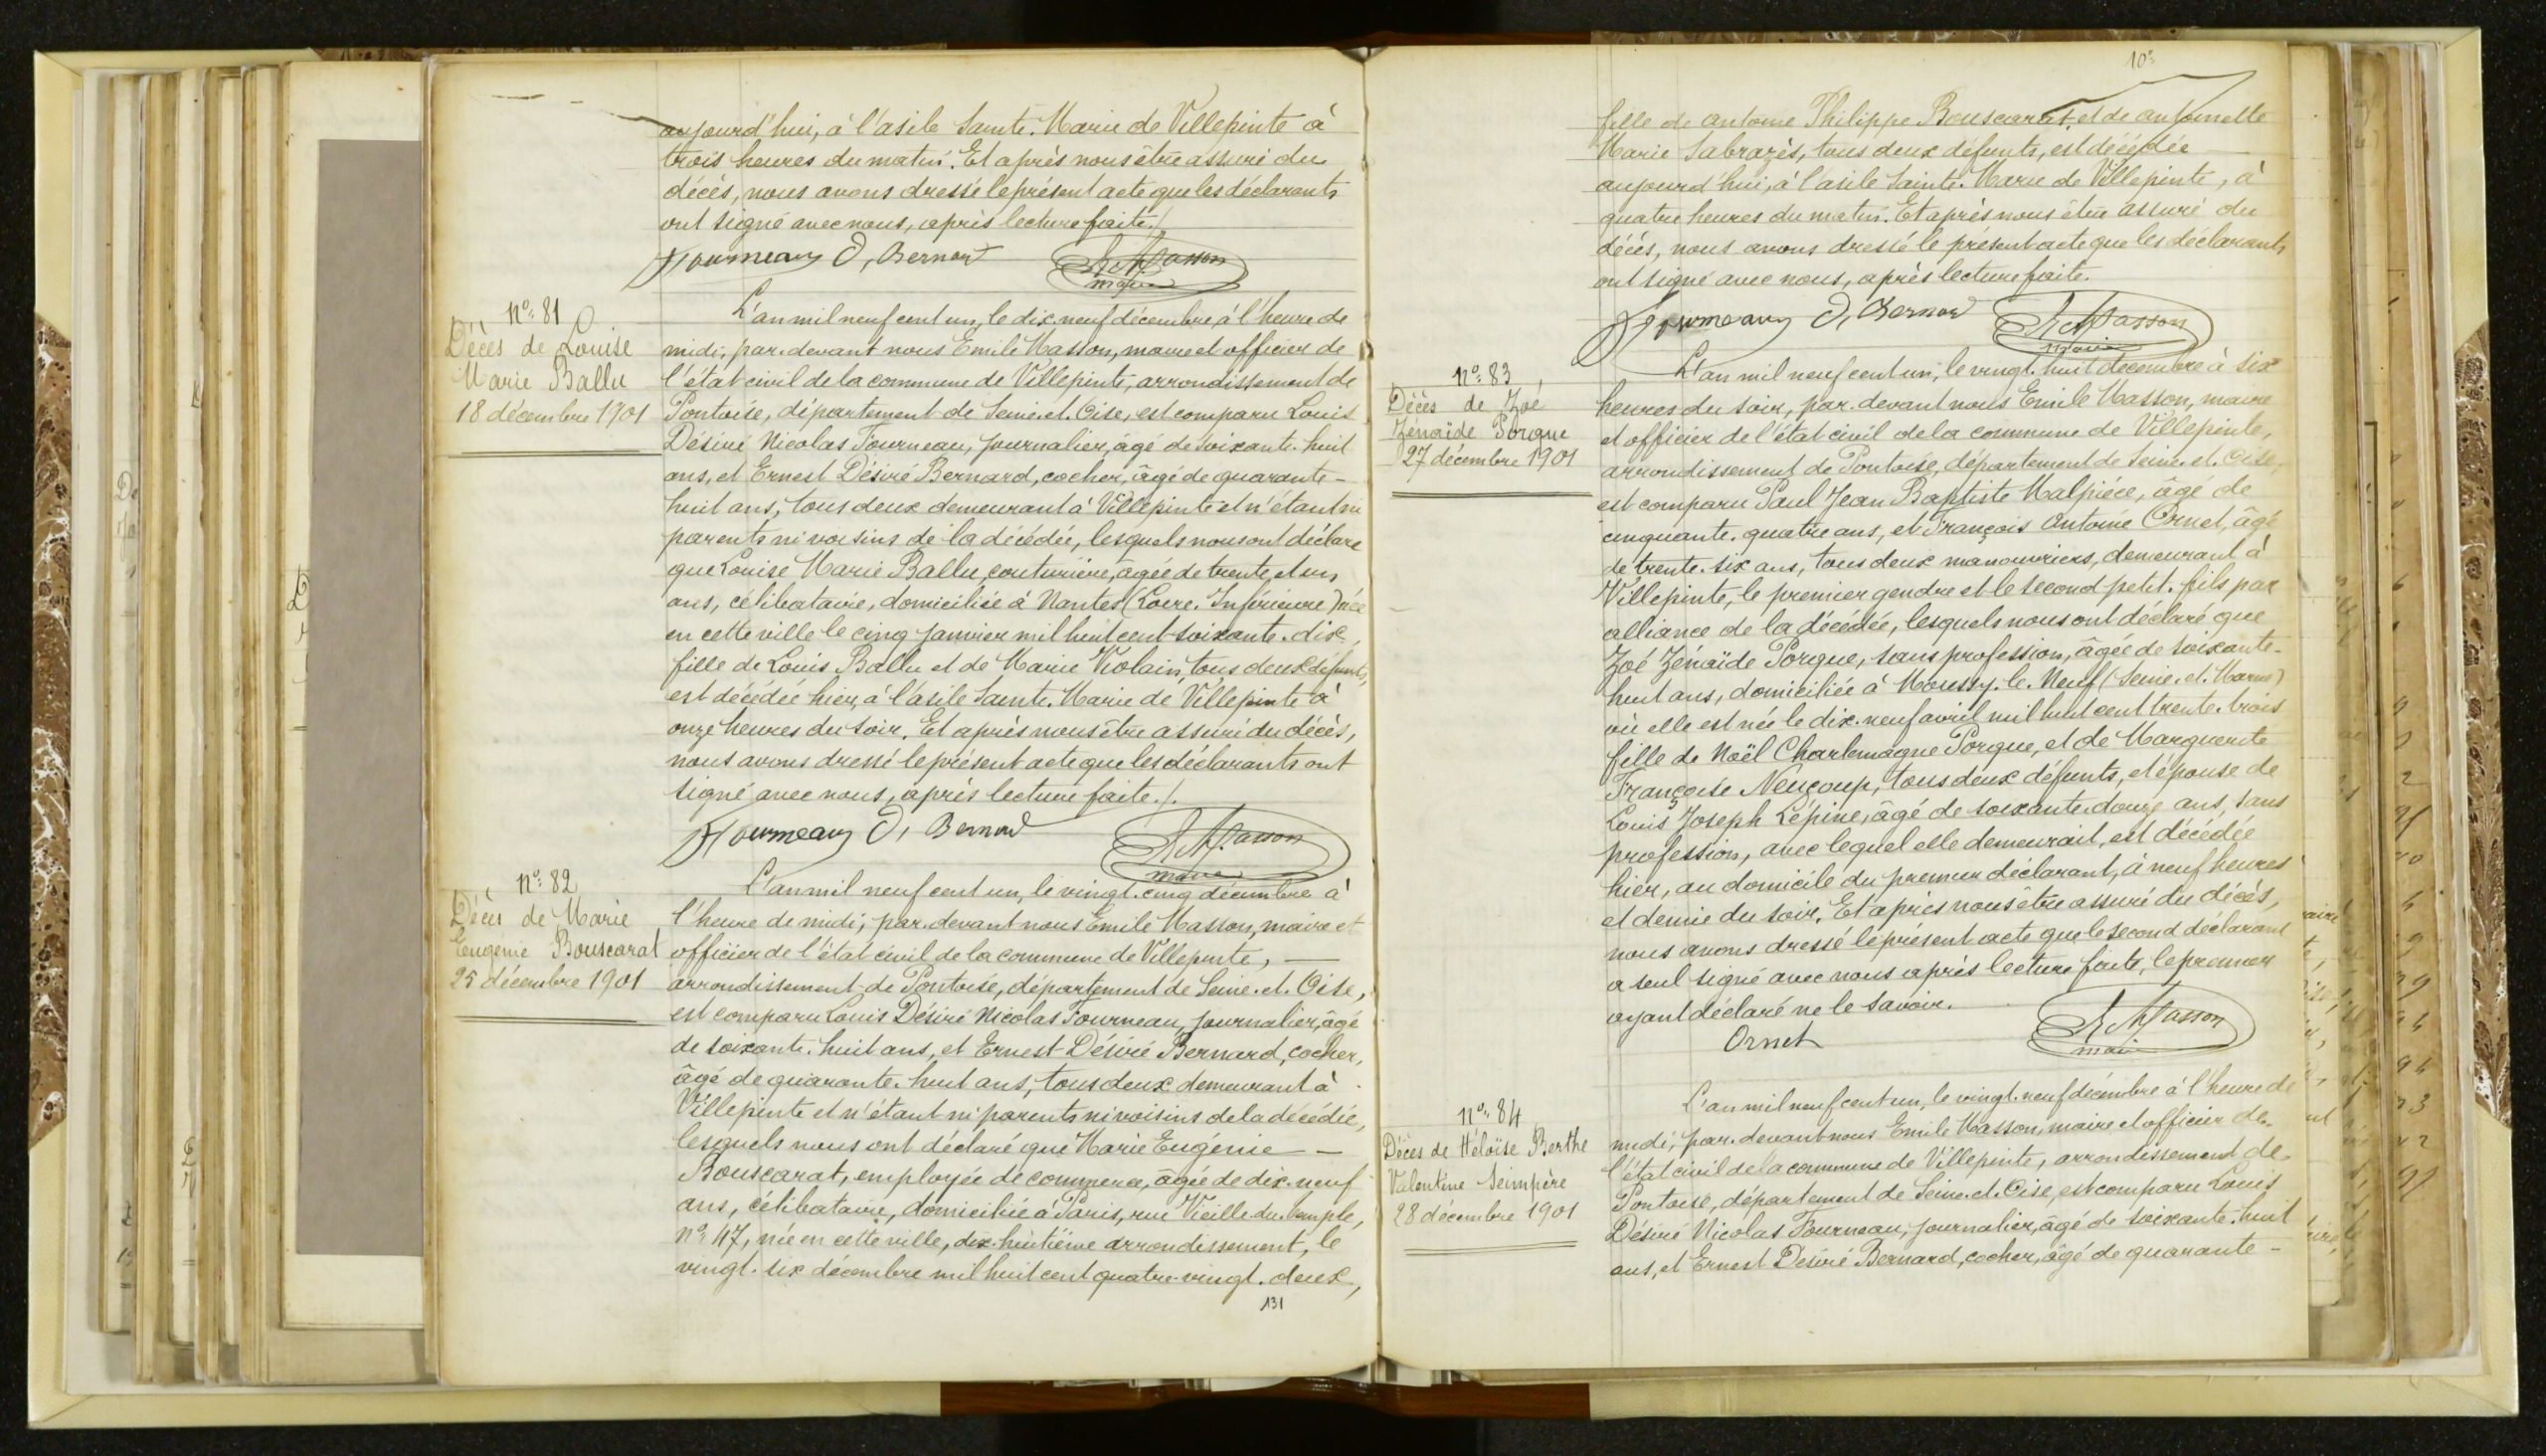 aujourd'hui, à l'asile Sainte. Marie de Villepinte à
trois heures du matin. Et après nous être assuré du
décès, nous avons dressé le présent acte que les déclarants
ont signé avec nous, après lecture faite./.
Fourneaux D, Bernard E Masson
maire
n°: 81
Décès de Louise
Marie Ballu
18 décembre 1901
L'an mil neuf cent un, le dix. neuf décembre, à l'heure de
midi, par. devant nous Emile Masson, maire et officier de
l'état civil de la commune de Villepinte, arrondissement de
Pontoise, département de Seine. et. Oise, est comparu Louis
Désiré Nicolas Fourneau, journalier, âgé de soixante. huit
ans, et Ernest Désiré Bernard, cocher, âgé de quarante-
huit ans, tous deux demeurant à Villepinte et n'étant ni
parents ni voisins de la décédée, lesquels nous ont déclaré
que Louise Marie Ballu, couturière, âgée de trente et un
ans, célibataire, domiciliée à Nantes (Loire. Inférieure) née
en cette ville le cinq janvier mil huit cent soixante. dix,
fille de Louis Ballu et de Marie Violain, tous deux défunts,
est décédée hier, à l'asile Sainte. Marie de Villepinte à
onze heures du soir. Et après nous être assuré du décès,
nous avons dressé le présent acte que les déclarants ont
signé avec nous, après lecture faite./.
Fourneaux D, Bernard E Masson
maire
n°: 82
Décès de Marie
Eugénie Bouscarat
25 décembre 1901
L'an mil neuf cent un, le vingt. cinq décembre à
l'heure de midi, par. devant nous Emile Masson, maire et
officier de l'état civil de la commune de Villepinte, —
arrondissement de Pontoise, département de Seine. et. Oise,
est comparu Louis Désiré Nicolas Fourneau, journalier, âgé
de soixante. huit ans, et Ernest Désiré Bernard, cocher,
âgé de quarante. huit ans, tous deux demeurant à
Villepinte et n'étant ni parents ni voisins de la décédée,
lesquels nous ont déclaré que Marie Eugénie —
Bouscarat, employée de commerce, âgée de dix. neuf
ans, célibataire, domiciliée à Paris, rue Vieille du. Temple,
n°: 47, née en cette ville, dix. huitième arrondissement, le
vingt. six décembre mil huit cent quatre-vingt. deux,
131
fille de antoine Philippe Bouscarat, et de antoinette
Marie Sabrazès, tous deux défunts, est décédée —
aujourd'hui, à l'asile Sainte. Marie de Villepinte, à
quatre heures du matin. Et après nous être assuré du
décès, nous avons dressé le présent acte que les déclarants
ont signé avec nous, après lecture faite.
Fourneaux D, Bernard E Masson
maire
n°: 83
Décès de Zoé
Zénaïde Porque
27 décembre 1901
L'an mil neuf cent un, le vingt. huit décembre à six
heures du soir, par. devant nous Emile Masson, maire
et officier de l'état civil de la commune de Villepinte,
arrondissement de Pontoise, département de Seine. et. Oise,
est comparu Paul Jean Baptiste Malpièce, âgé de
cinquante. quatre ans, et François Antoine Ornet, âgé
de trente. six ans, tous deux manouvriers, demeurant à
Villepinte, le premier gendre et le second petit. fils par
alliance de la décédée, lesquels nous ont déclaré que
Zoé Zénaïde Porque, sans profession, âgée de soixante-
huit ans, domiciliée à Moussy. le. Neuf (Seine. et. Marne)
où elle est née le dix. neuf avril mil huit cent trente. trois
fille de Noël Charlemagne Porque, et de Marguerite
Françoise Neucoup, tous deux défunts, et épouse de
Louis Joseph Lépine, âgé de soixante. douze ans, sans
profession, avec lequel elle demeurait, est décédée
hier, au domicile du premier déclarant, à neuf heures
et demie du soir. Et après nous être assuré du décès,
nous avons dressé le présent acte que le second déclarant
a seul signé avec nous après lecture faite, le premier
ayant déclaré ne le savoir.
Ornet E Masson
maire
n°: 84
Décès de Héloïse Berthe
Valentine Seimpère
28 décembre 1901
L'an mil neuf cent un, le vingt. neuf décembre à l'heure de
midi, par. devant nous Emile Masson, maire et officier de
l'état civil de la commune de Villepinte, arrondissement de
Pontoise, département de Seine. et. Oise, est comparu Louis
Désiré Nicolas Fourneau, journalier, âgé de soixante. huit
ans, et Ernest Désiré Bernard, cocher, âgé de quarante-